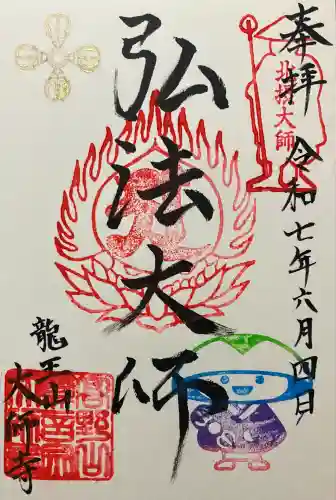 奉拝
令和七年六月四日
北摂大師
弘法大師
龍王山
大師寺